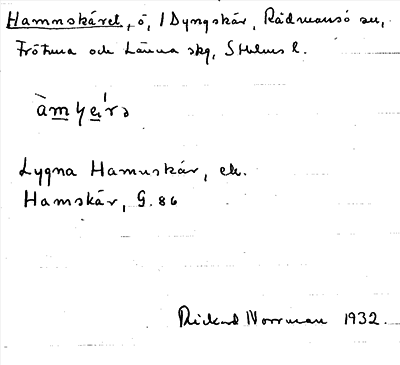 Hamnskäret, ö, 1 Dyngskär, Rådmansö sn,
Frötuna och Länna skg, Sthlms l.
Lygna Hamnskär, ek.
Hamskär, G. 86
Rickard Norrman 1932.